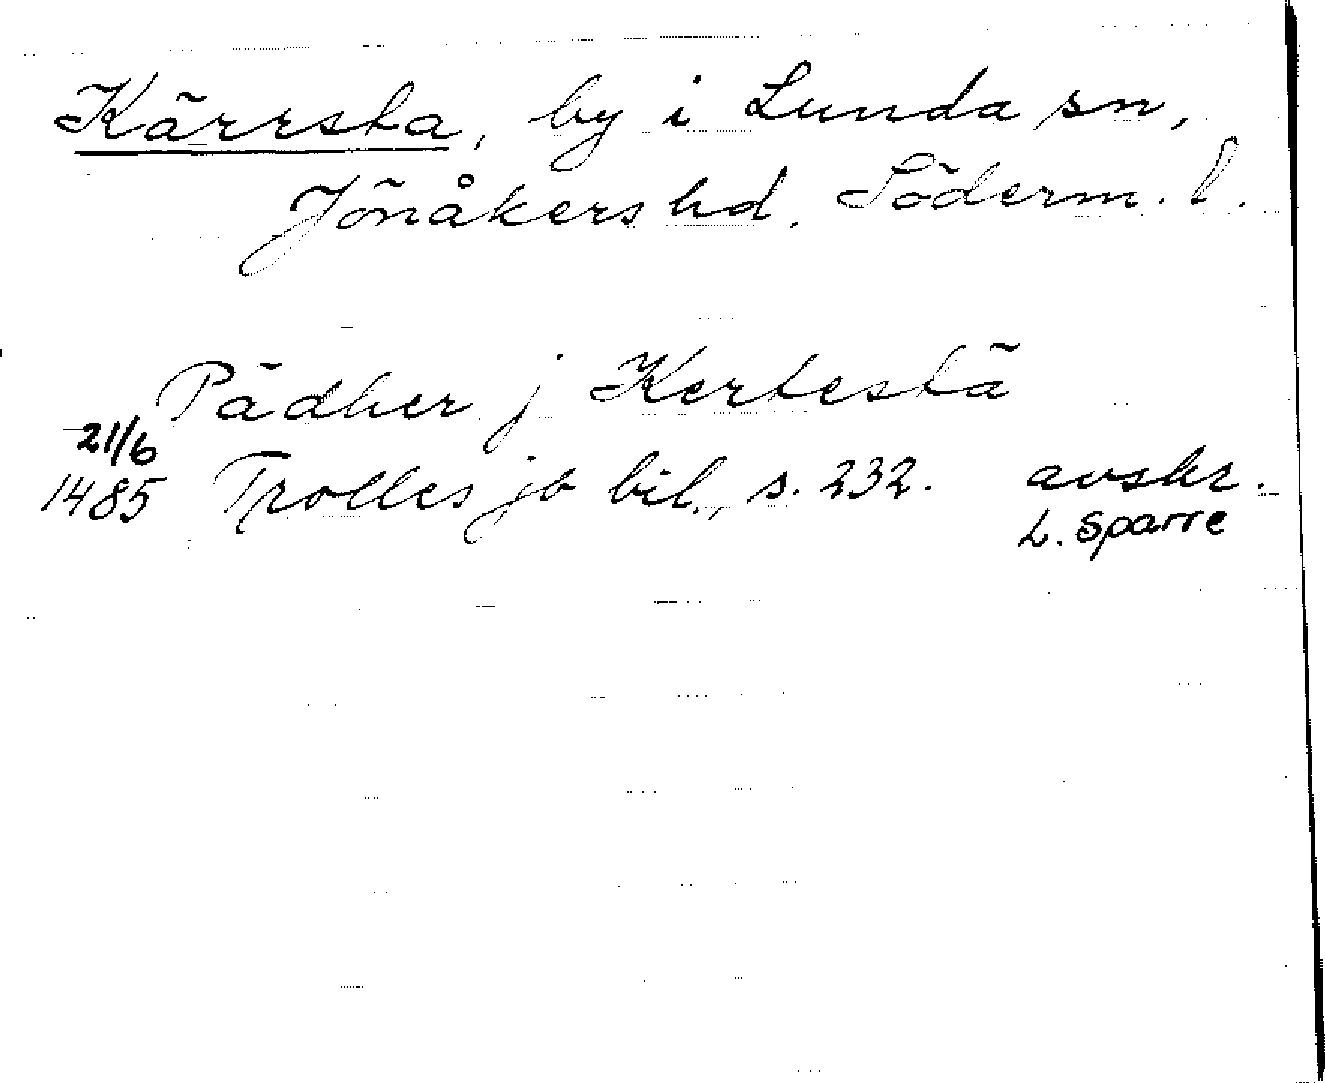 Kärrsta, by i Lunda sn,
Jönåkers hd. Söderm. l.
Pädher j Kertestä
21/6
1485 Trolles jb bil., s. 232. avskr.
L. Sparre